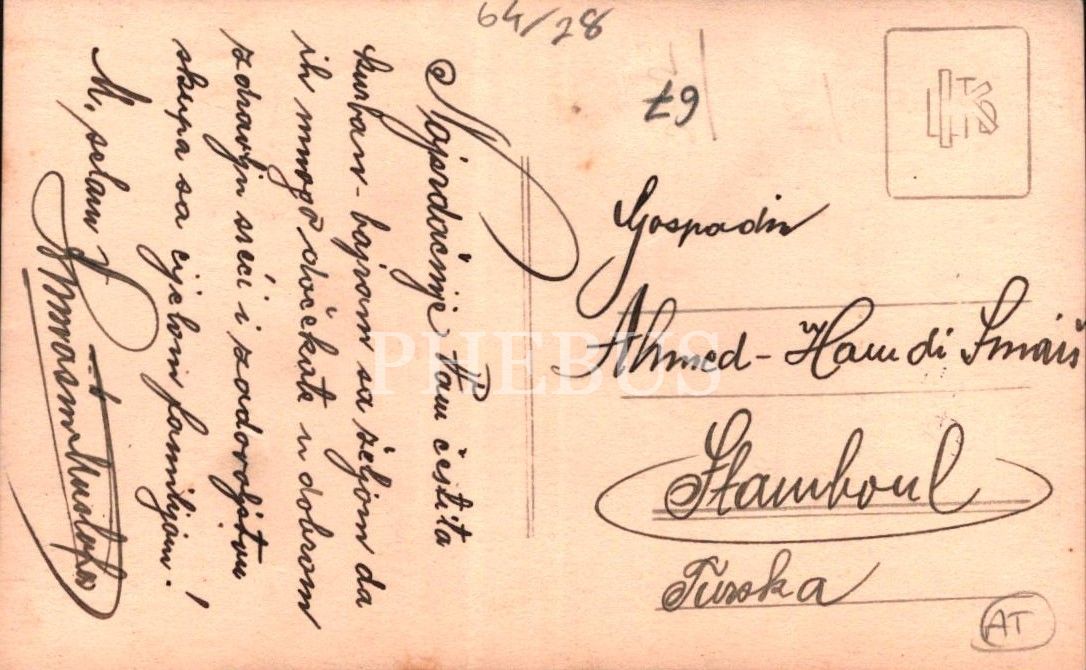 64/28
67
Najsrdačnije Vam čestita
kurban-bajram sa željom da
ih mnogo dočekate u dobrom
zdravlju sreći i zadovoljstvu
skupa sa cijelom familijom!
M. selam!
Mustafa
Gospodin
Ahmed-Hamdi Smaiš
Stamboul
Turska
AT
PHEBUS